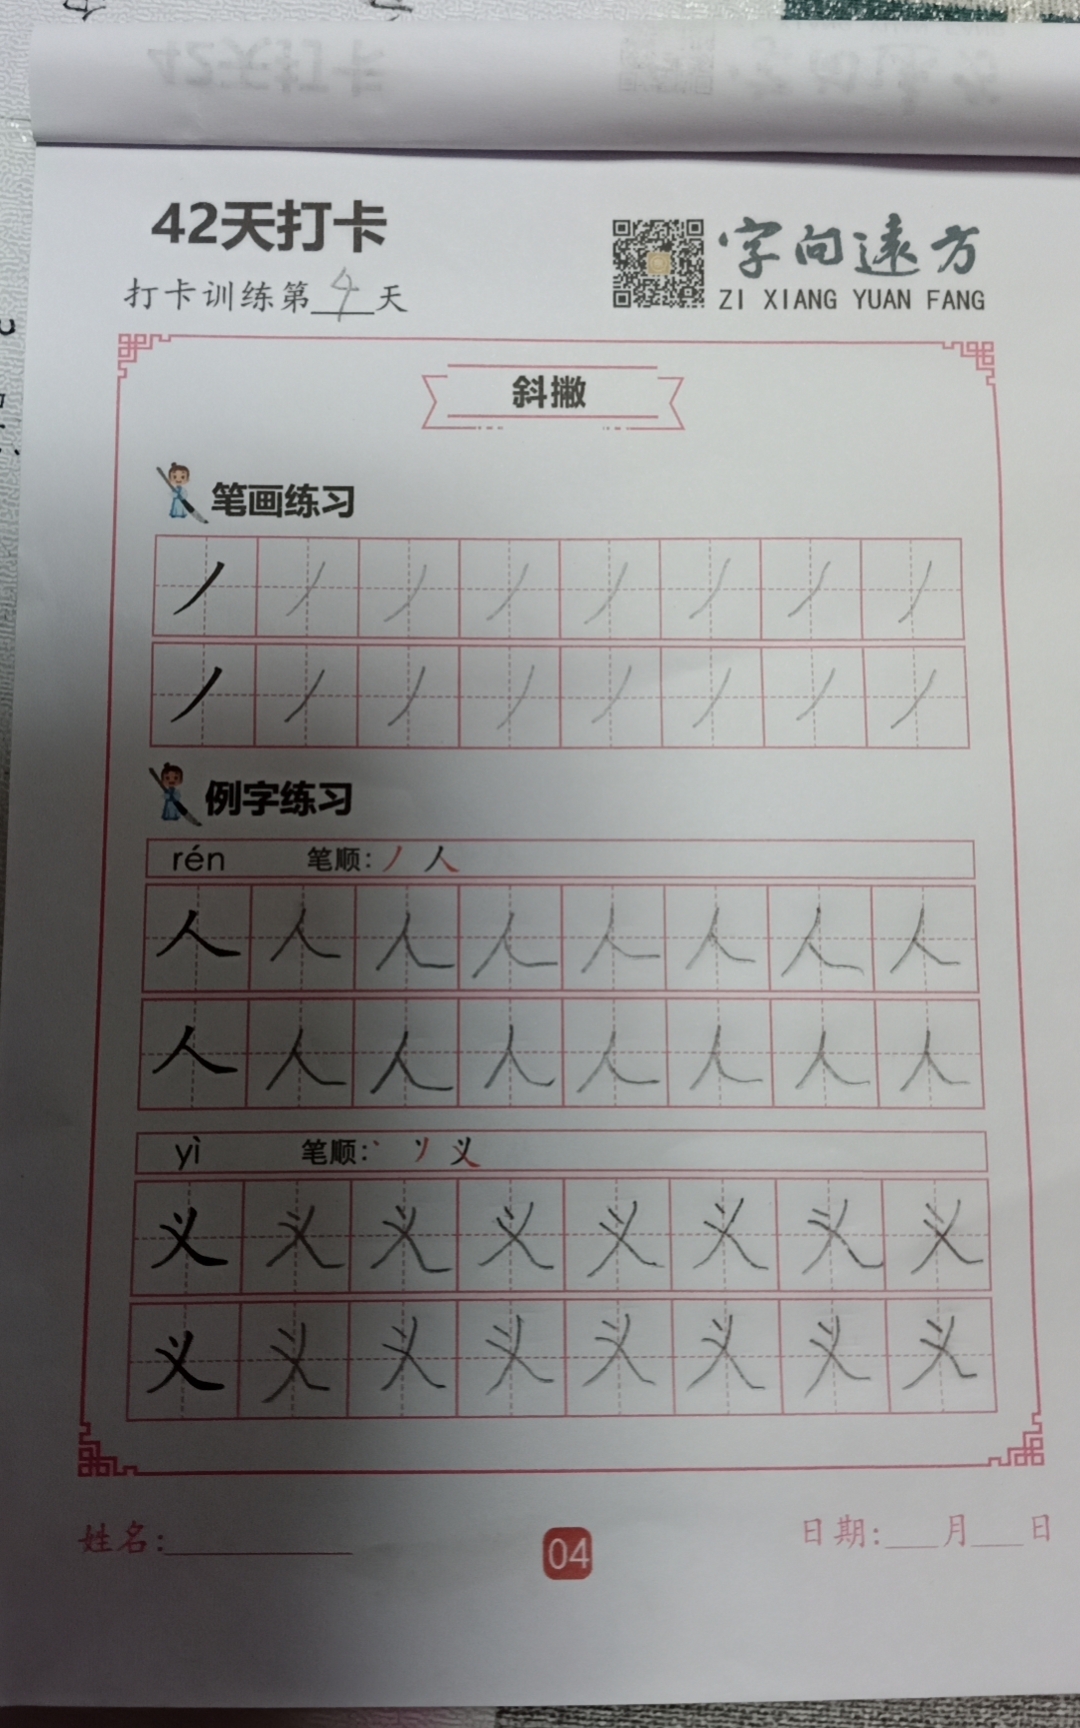 42天打卡
字向远方
打卡训练第4天
ZI XIANG YUAN FANG
斜撇
笔画练习
丿丿丿丿丿丿丿丿
丿丿丿丿丿丿丿丿
例字练习
rén 笔顺:丿 人
人人人人人人人人
人人人人人人人人
yì 笔顺:丶 丷 义
义义义义义义义义
义义义义义义义义
姓名:
04
日期: 月 日